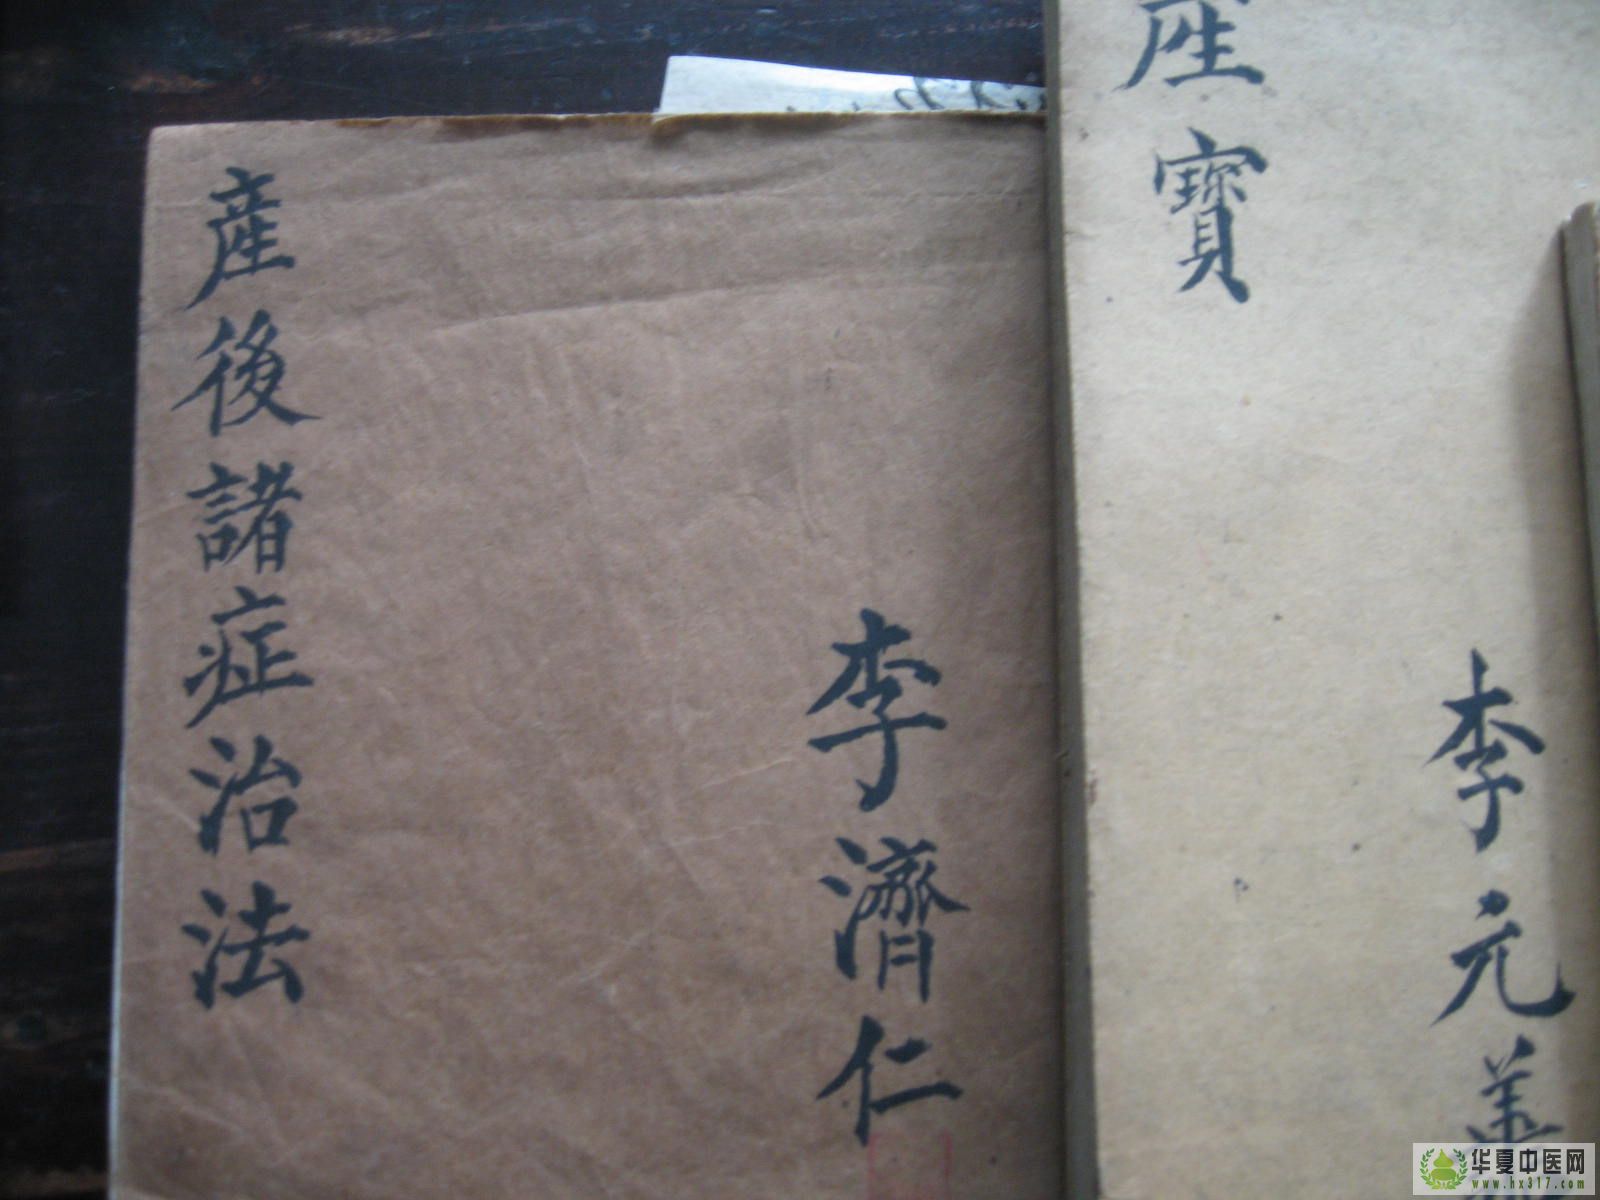 産後諸症治法
李濟仁
産寶
李元善
华夏中医网
www.hx317.com